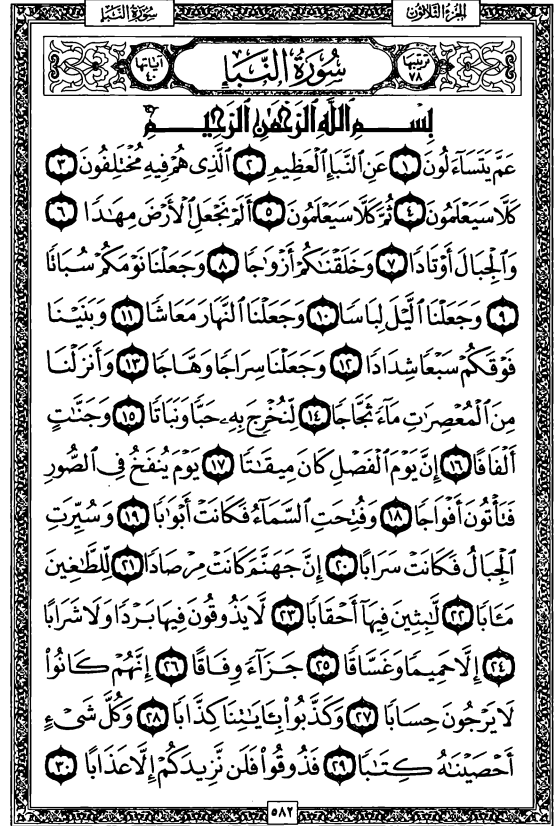 الجزء الثلاثون
سورة النبإ
ترتيبها ٧٨
سُورَةُ النَّبَإِ
آياتها ٤٠
بِسْمِ ٱللَّهِ ٱلرَّحْمَٰنِ ٱلرَّحِيمِ
عَمَّ يَتَسَآءَلُونَ ١ عَنِ ٱلنَّبَإِ ٱلْعَظِيمِ ٢ ٱلَّذِى هُمْ فِيهِ مُخْتَلِفُونَ ٣
كَلَّا سَيَعْلَمُونَ ٤ ثُمَّ كَلَّا سَيَعْلَمُونَ ٥ أَلَمْ نَجْعَلِ ٱلْأَرْضَ مِهَٰدًا ٦
وَٱلْجِبَالَ أَوْتَادًا ٧ وَخَلَقْنَٰكُمْ أَزْوَٰجًا ٨ وَجَعَلْنَا نَوْمَكُمْ سُبَاتًا
٩ وَجَعَلْنَا ٱلَّيْلَ لِبَاسًا ١٠ وَجَعَلْنَا ٱلنَّهَارَ مَعَاشًا ١١ وَبَنَيْنَا
فَوْقَكُمْ سَبْعًا شِدَادًا ١٢ وَجَعَلْنَا سِرَاجًا وَهَّاجًا ١٣ وَأَنزَلْنَا
مِنَ ٱلْمُعْصِرَٰتِ مَآءً ثَجَّاجًا ١٤ لِّنُخْرِجَ بِهِۦ حَبًّا وَنَبَاتًا ١٥ وَجَنَّٰتٍ
أَلْفَافًا ١٦ إِنَّ يَوْمَ ٱلْفَصْلِ كَانَ مِيقَٰتًا ١٧ يَوْمَ يُنفَخُ فِى ٱلصُّورِ
فَتَأْتُونَ أَفْوَاجًا ١٨ وَفُتِحَتِ ٱلسَّمَآءُ فَكَانَتْ أَبْوَٰبًا ١٩ وَسُيِّرَتِ
ٱلْجِبَالُ فَكَانَتْ سَرَابًا ٢٠ إِنَّ جَهَنَّمَ كَانَتْ مِرْصَادًا ٢١ لِّلطَّٰغِينَ
مَـَٔابًا ٢٢ لَّٰبِثِينَ فِيهَآ أَحْقَابًا ٢٣ لَّا يَذُوقُونَ فِيهَا بَرْدًا وَلَا شَرَابًا
٢٤ إِلَّا حَمِيمًا وَغَسَّاقًا ٢٥ جَزَآءً وِفَاقًا ٢٦ إِنَّهُمْ كَانُوا۟
لَا يَرْجُونَ حِسَابًا ٢٧ وَكَذَّبُوا۟ بِـَٔايَٰتِنَا كِذَّابًا ٢٨ وَكُلَّ شَىْءٍ
أَحْصَيْنَٰهُ كِتَٰبًا ٢٩ فَذُوقُوا۟ فَلَن نَّزِيدَكُمْ إِلَّا عَذَابًا ٣٠
٥٨٢